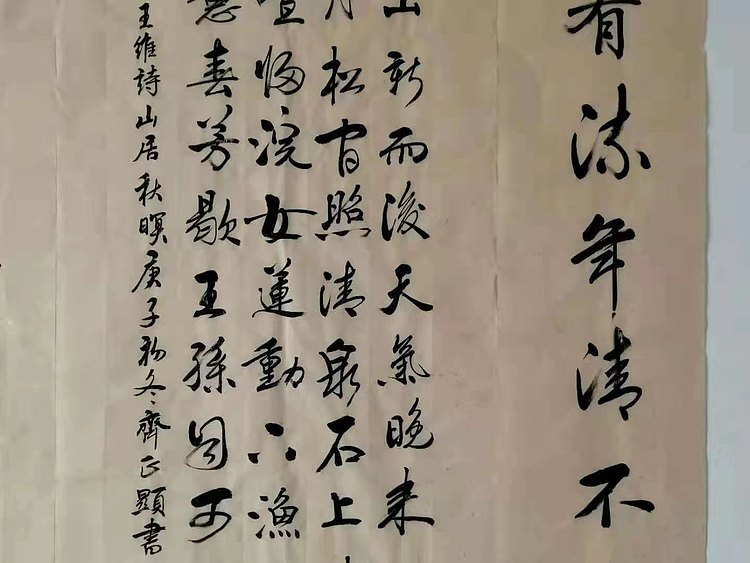 有流年清不
山新雨後天氣晚来
月松間照清泉石上
喧歸浣女蓮動下漁
意春芳歇王孫自可
王維詩山居秋暝庚子初冬齊正顯書